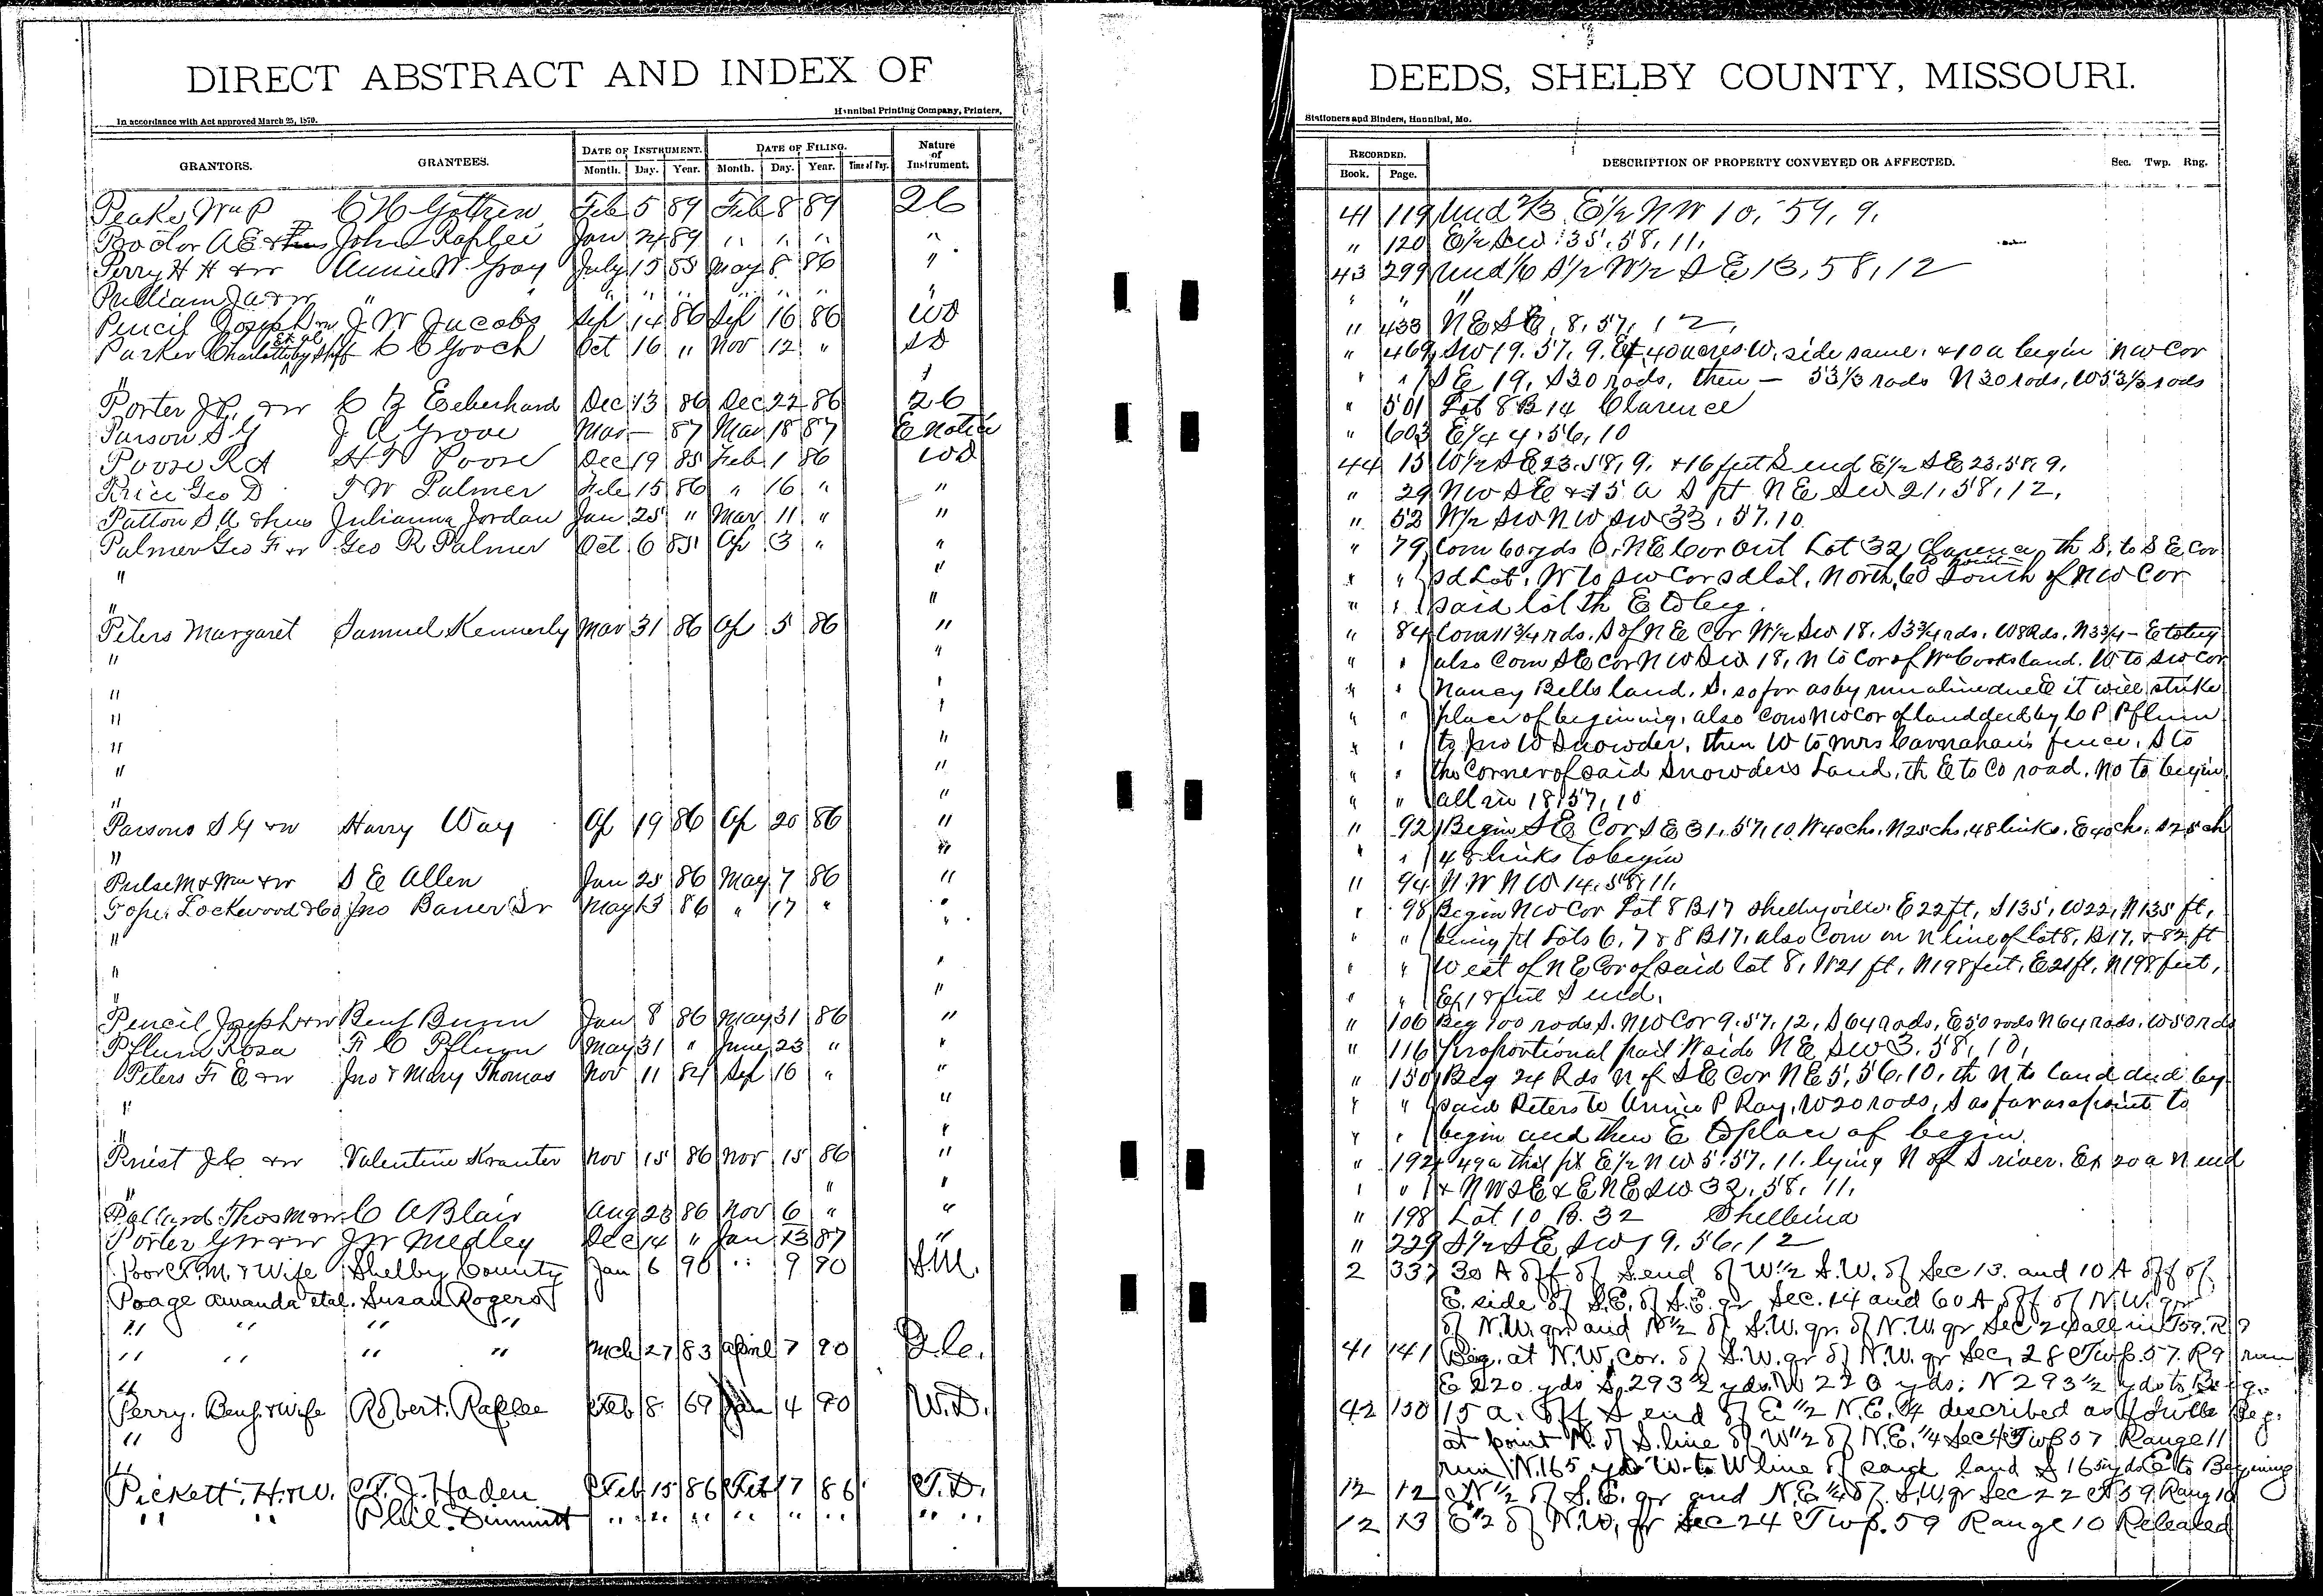 DIRECT ABSTRACT AND INDEX OF
Hannibal Printing Company, Printers,
In accordance with Act approved March 25, 1870.
GRANTORS. GRANTEES. DATE OF INSTRUMENT. DATE OF FILING. Nature of Instrument.
Month. Day. Year. Month. Day. Year. Time of Day.
Peake Wm P C H Feb 5 89 Feb 8 89 26
Proctor A E & John S Raplee Jan 24 89 " " " "
Perry H H & w Annie W. Gray July 15 85 May 8 86 "
Pulliam J A & w " " " " " " " "
Pencil Joseph & w J W Jacobs Sep 14 86 Sep 16 86 WD
Parker Charlotte et al by Shff C C Gooch Oct 16 " Nov 12 " SD
"
Porter J C, & w C Z Eeberhard Dec 13 86 Dec 22 86 26
Parson S G J A Grove Mar — 87 Mar 18 87 E Notice
Poore R A H T Poore Dec 19 85 Feb 1 86 WD
Price Geo D T W Palmer Feb 15 86 " 16 " "
Patton S A & hus Julianna Jordan Jan 25 " Mar 11 " "
Palmer Geo F & w Geo R Palmer Oct 6 85 Ap 3 " "
" "
" "
Peters Margaret Samuel Kennerly Mar 31 86 Ap 5 86 "
" "
" "
" "
" "
" "
" "
Parsons S G & w Harry Way Ap 19 86 Ap 20 86 "
" "
Pulse M & Wm & w S E Allen Jan 25 86 May 7 86 "
Pope, Lockwood & Co Jno Bauer Sr May 13 86 " 17 " "
" "
" "
" "
Pencil Joseph & w Benj Bunn Jan 8 86 May 31 86 "
Pflum Rosa F C Pflum May 31 " June 23 " "
Peters F E & w Jno & Mary Thomas Nov 11 84 Sep 16 " "
" "
" "
Priest J C & w Valentine Kranter Nov 15 86 Nov 15 86 "
" " "
Pollard Thos M & w C A Blair Aug 23 86 Nov 6 " "
Porter G W & w J W Medley Dec 14 " Jan 13 87 "
Poor F. M. & Wife Shelby County Jan 6 90 " 9 90 S.M.
Poage Amanda etal. Susan Rogers
" " " "
" " " " Mch 27 83 April 7 90 Q.C.
"
Perry. Benj. & Wife Robert. Raplee Feb 8 69 Jan 4 90 W.D.
"
"
Pickett, H. & W. T. J. Haden Feb 15 86 Feb 17 86 T.D.
" " Phil. Dimmitt " " " " " " " "
DEEDS, SHELBY COUNTY, MISSOURI.
Stationers and Binders, Hannibal, Mo.
RECORDED. DESCRIPTION OF PROPERTY CONVEYED OR AFFECTED. Sec. Twp. Rng.
Book. Page.
41 119 Und 2/3 E½ NW 10, 59, 9,
" 120 E½ SW 35, 58, 11,
43 299 Und 1/6 S½ W½ SE 13, 58, 12
" " "
" 433 NE SE, 8, 57, 12,
" 469 SW 19, 57, 9. Ex 40 acres W. side same. & 10 a begin NW Cor
" " SE 19, S 30 rods, then — 53⅓ rods N 30 rods, W 53⅓ rods
" 501 Lot 8 B 14 Clarence
" 603 E¼ 4, 56, 10
44 15 W½ SE 23, 58, 9, & 16 feet S end E½ SE 23, 58, 9,
" 29 NW SE & 15 a S pt NE SW 21, 58, 12,
" 52 W½ SW NW SW 33, 57, 10
" 79 Com 60 yds S. NE Cor Out Lot 32 Clarence th S. to SE Cor
" " sd Lot, W to SW Cor sd lot, North, to point 60 South of NW Cor
" " said lot th E to beg.
" 84 Com 11¾ rds. S of NE Cor W½ SW 18, S 3¾ rds. W 8 Rds, N 3¾ – E to beg
" " also Com SE cor NW SW 18, N to Cor of Wm Cooks land. W to SW cor
" " Nancy Bells land, S. so far as by run a line due E it will strike
" " place of beginning, also Com NW cor of land deed by C P Pflum
" " to Jno W Snowder, then W to Mrs Carnahan's fence, S to
" " the Corner of said Snowders Land, th E to Co road, No to begin
" " all in 18, 57, 10
" 92 Begin SE Cor SE 31, 57, 10, W 40 chs, N 25 chs, 48 links, E 40 chs, S 25 ch
" " 48 links to begin
" 94 N.W NW 14, 58, 11,
" 98 Begin NW Cor Lot 8 B 17 Shelbyville, E 22 ft, S 135, W 22, N 135 ft,
" " being pt Lots 6, 7 & 8 B 17, also Com on N line of lot 8, B 17, & 82 ft
" " West of NE Cor of said lot 8, W 21 ft, N 198 feet, E 21 ft, N 198 feet,
" " Ex 18 feet S end.
" 106 Beg 100 rods S. NW Cor 9, 57, 12, S 64 rods, E 50 rods N 64 rods, W 50 rds
" 116 Proportional part W side NE SW 3, 58, 10,
" 150 Beg 24 Rds N of SE Cor NE 5, 56, 10, th N to land deed by
" " said Peters to Annie P Ray, W 20 rods, S as far as a point to
" " begin and then E to place of begin.
" 192 49 a that pt E½ NW 5, 57, 11, lying N of S river. Ex 20 a N end
" " & NW SE & E NE SW 32, 58, 11,
" 198 Lot 10 B. 32 Shelbina
" 229 S½ SE SW 19, 56, 12
2 337 30 A off of S. end of W½ S.W. of Sec 13. and 10 A off of
E. side of S.E. of S.E. qr Sec. 14 and 60 A off of N.W. qr
of N.W. qr and N½ of S.W. qr. of N.W. qr Sec 24 all in R 9
41 141 Beg. at N.W. cor. of S.W. qr of N.W. qr Sec, 28 Twp. 57. R 9 run
E 220 yds S, 293½ yds W 220 yds; N 293½ yds to Beg.
42 150 15 a. off S end of E½ N.E. ¼ described as follows Beg.
at point N. of S. line of W½ of N.E. ¼ Sec 4 Twp 57 Range 11
run N. 165 yds W. to W line of said land S 165 yds E to Begining
12 12 N½ of S.E. qr and N.E. ¼ of S.W. qr Sec 22 T 59 Rang 10
12 13 E½ of N.W. qr Sec 24 Twp. 59 Range 10 Released